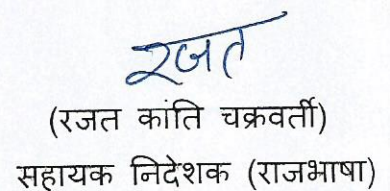 रजत
(रजत कांति चक्रवर्ती)
सहायक निदेशक (राजभाषा)